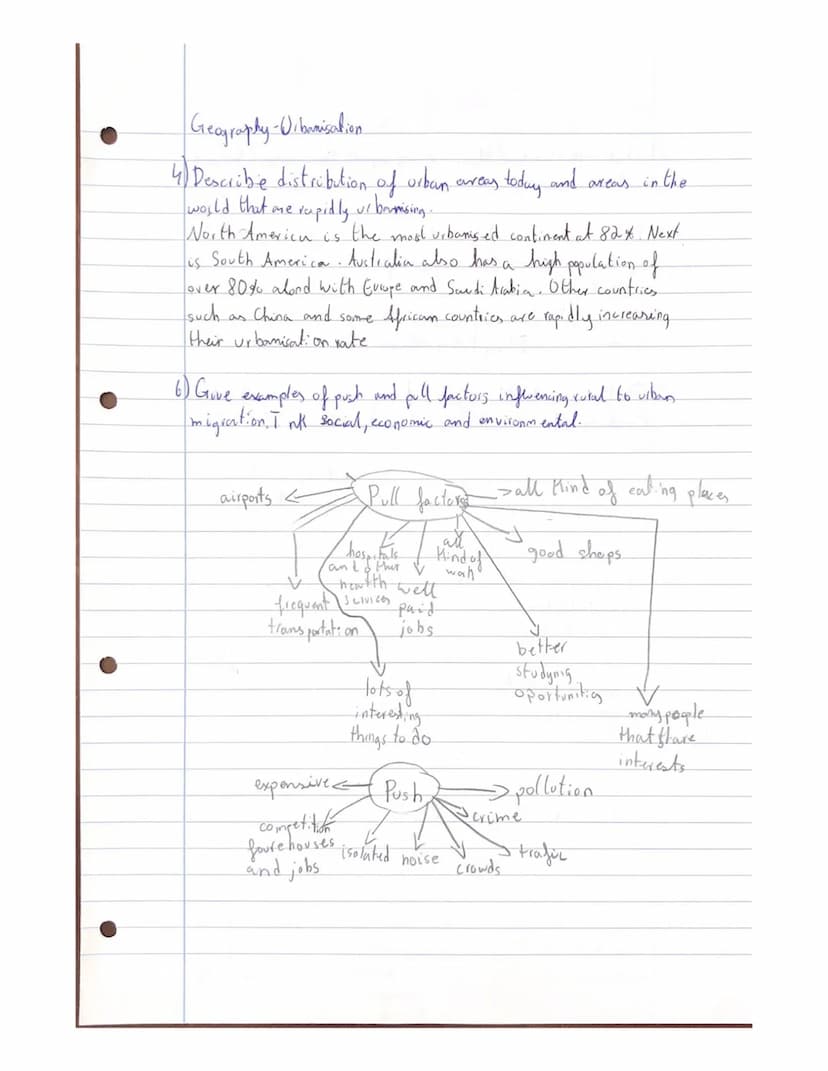 Geography-Urbanisation
4) Describe distribution of urban areas today and areas in the
world that are rapidly urbanising.
North America is the most urbanised continent at 82%. Next
is South America. Australia also has a high population of
over 80% alond with Europe and Saudi Arabia. Other countries
such as China and some African countries are rapidly increasing
their urbanisation rate
6) Give examples of push and pull factors influencing rural to urban
migration. social, economic and environmental.
Pull factors
airports
all kind of eating places
hospitals
and other
health
services
all
kind of
good shops
frequent
transportation
well
paid
jobs
better
studying
oportunities
lots of
interesting
things to do
many people
that share
interests
Push
expensive
pollution
crime
competition
houses
and jobs
isolated
noise
crowds
trafic